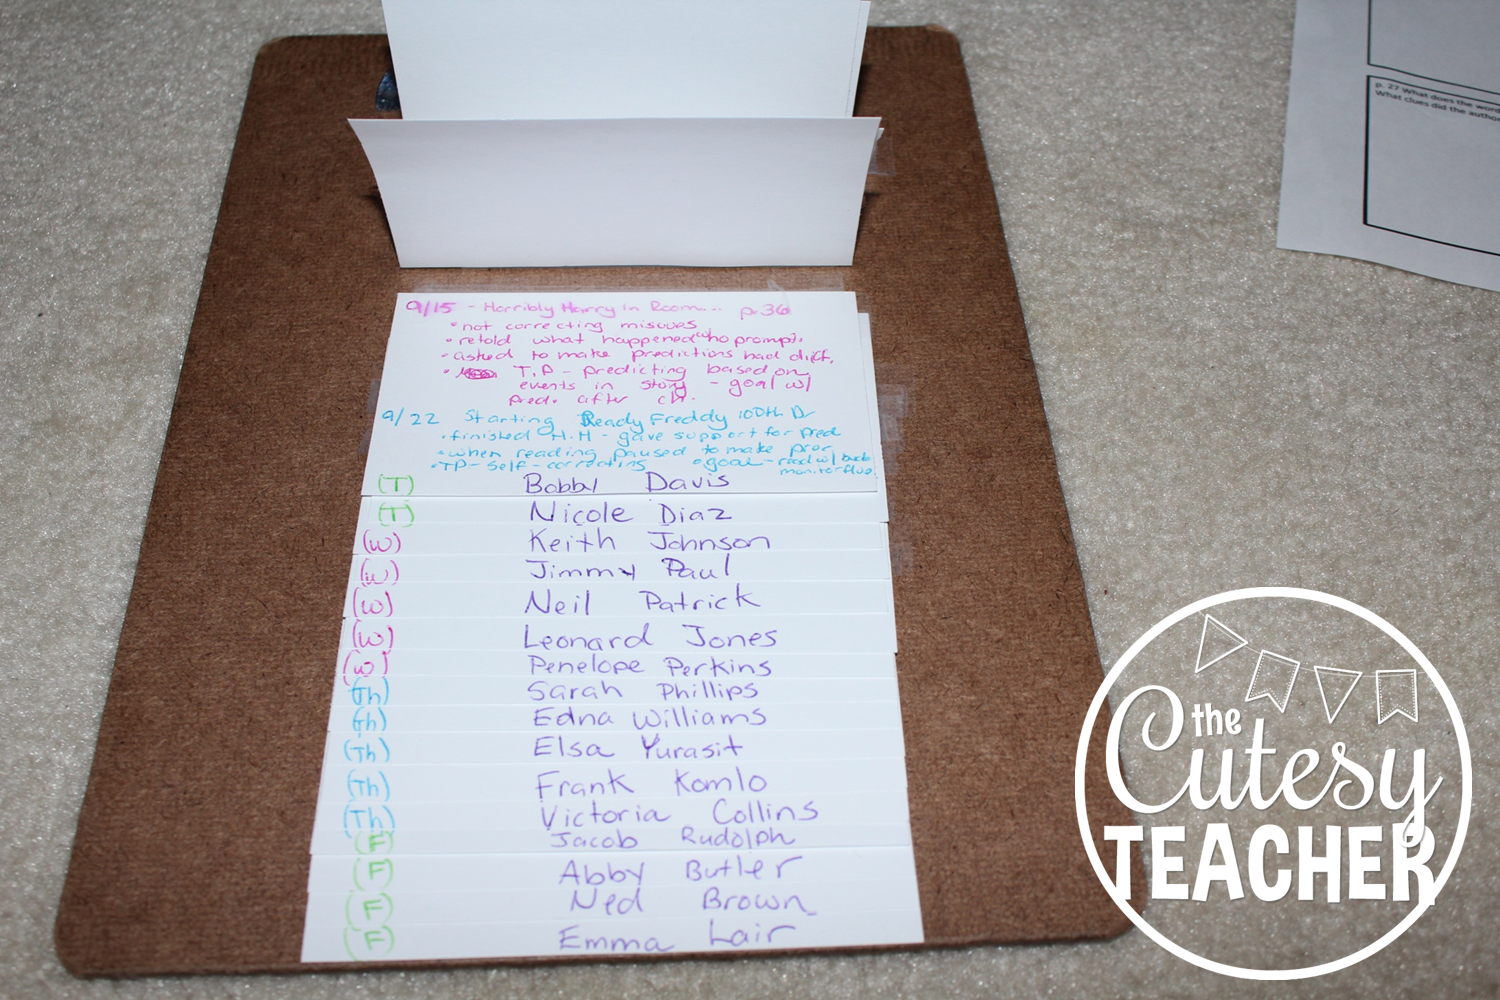 p. 27 What does the word
What clues did the autho
9/15 - Horribly Harry in Room... p.36
• not correcting miscues
• retold what happened w/no prompt.
• asked to make predictions had diff.
• T.P - predicting based on
events in story - goal w/
pred. after ch.
9/22 Starting Ready Freddy 100th D
• finished H.H - gave support for pred
• when reading paused to make
• TP - self-correcting • goal - read w/
monitor
(T) Bobby Davis
(T) Nicole Diaz
(W) Keith Johnson
(W) Jimmy Paul
(W) Neil Patrick
(W) Leonard Jones
(W) Penelope Perkins
(Th) Sarah Phillips
(Th) Edna Williams
(Th) Elsa Yurasit
(Th) Frank Komlo
(Th) Victoria Collins
(F) Jacob Rudolph
(F) Abby Butler
(F) Ned Brown
(F) Emma Lair
the
Cutesy
TEACHER